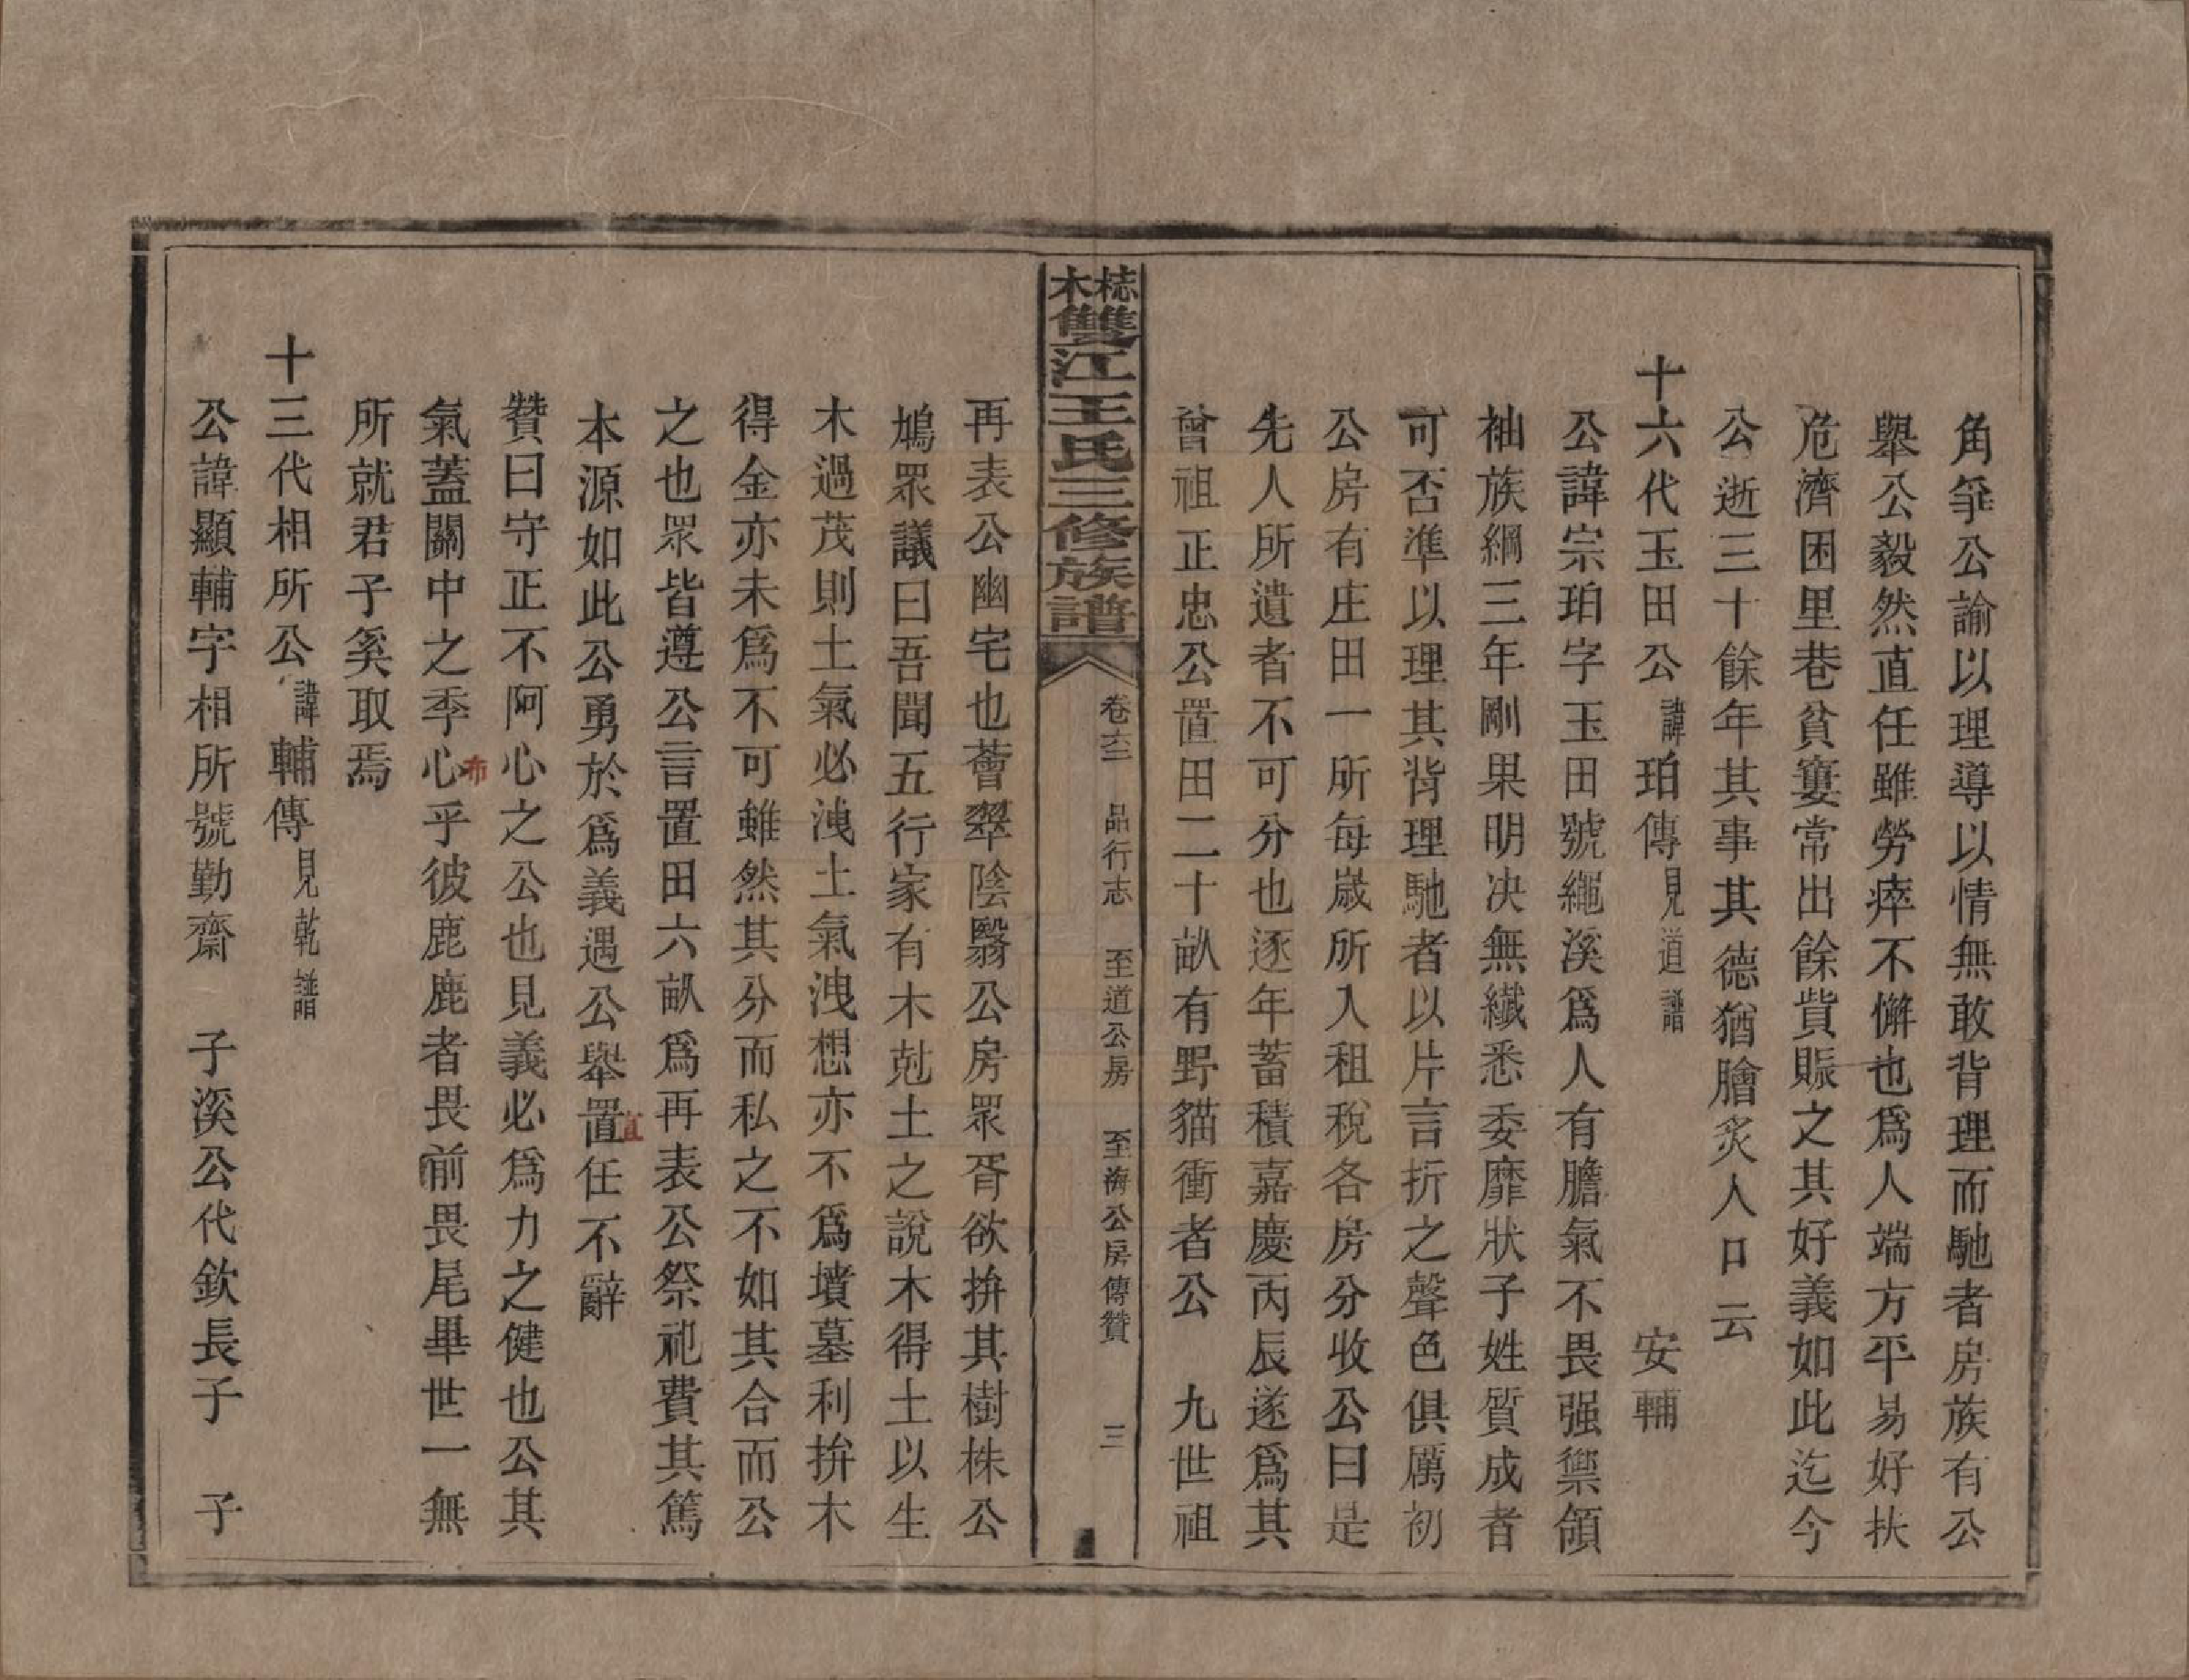 角爭公諭以理導以情無敢背理而馳者房族有公
舉公毅然直任雖勞瘁不懈也爲人端方平易好扶
危濟困里巷貧窶常出餘貲賑之其好義如此迄今
公逝三十餘年其事其德猶膾炙人口云
十六代玉田公諱珀傳見道譜 安輔
公諱宗珀字玉田號繩溪爲人有膽氣不畏强禦領
袖族綱三年剛果明决無纖悉委靡狀子姓質成者
可否準以理其背理馳者以片言折之聲色俱厲初
公房有庄田一所每歲所入租稅各房分收公曰是
先人所遺者不可分也逐年蓄積嘉慶丙辰遂爲其
曾祖正忠公置田二十畝有野貓衝者公 九世祖
桬木雙江王氏三修族譜
卷六二 品行志 至道公房 至海公房傳贊 三
再表公幽宅也薈翠陰翳公房眾胥欲拚其樹株公
鳩眾議曰吾聞五行家有木尅土之說木得土以生
木過茂則土氣必洩土氣洩想亦不爲墳墓利拚木
得金亦未爲不可雖然其分而私之不如其合而公
之也眾皆遵公言置田六畝爲再表公祭祀費其篤
本源如此公勇於爲義遇公舉置任不辭
直
贊曰守正不阿心之公也見義必爲力之健也公其
氣蓋關中之季心乎彼鹿鹿者畏前畏尾畢世一無
布
所就君子奚取焉
十三代相所公諱輔傳見乾譜
公諱顯輔字相所號勤齋 子溪公代欽長子 子